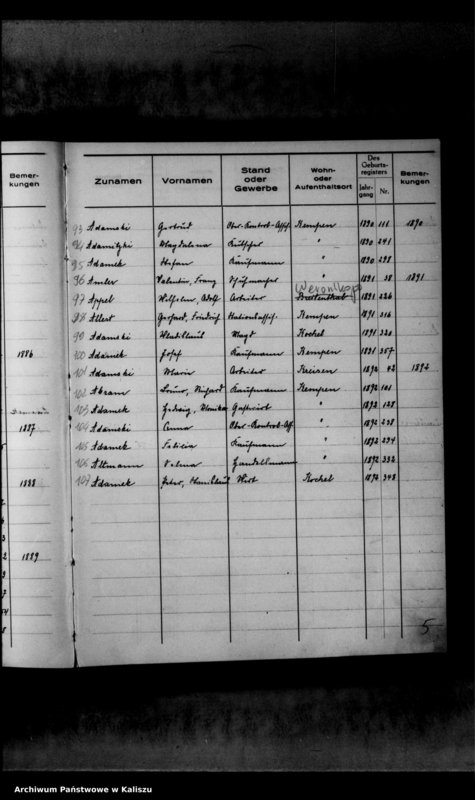 Bemer-
kungen
1886
1887
1888
1889
Zunamen Vornamen Stand oder Gewerbe Wohn- oder Aufenthaltsort Des Geburts-registers Jahr-gang Nr. Bemer-kungen
93 Adamski Gertrud Ober-Kontrol-Assist. Kempen 1890 111 1890
94 Magdalena " 1890 241
95 Adamek Stefan Kaufmann " 1890 298
96 Valentin, Franz Schuhmacher " 1891 58 1891
97 Appel Wilhelm, Adolf Arbeiter 1891 226
98 Allert Gerhard, Friedrich Kempen 1891 316
99 Adamski Magd Kochel 1891 320
100 Adamek Josef Kaufmann Kempen 1891 357
101 Adamski Maria Arbeiter Kreisen 1892 42 1892
102 Abram Bruno, Richard Kaufmann Kempen 1892 101
103 Adamek Hedwig, Monika Gastwirt " 1892 128
104 Adamski Anna Ober-Kontrol-Ass. " 1892 238
105 Adamek Felicia Kaufmann " 1892 294
106 Altmann Selma Handelsmann " 1892 332
107 Adamek Peter, Wirt Kochel 1892 348
5
Archiwum Państwowe w Kaliszu